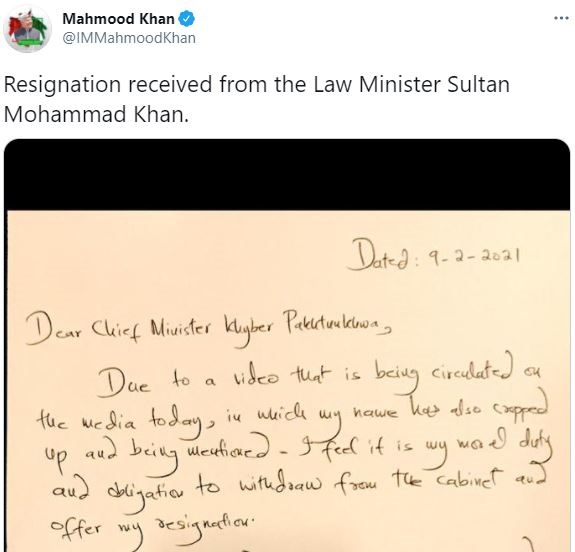 Mahmood Khan
@IMMahmoodKhan
Resignation received from the Law Minister Sultan
Mohammad Khan.
Dated: 9-2-2021
Dear Chief Minister Khyber Pakhtunkhwa,
Due to a video that is being circulated on
the media today, in which my name has also cropped
up and being mentioned - I feel it is my moral duty
and obligation to withdraw from the cabinet and
offer my resignation.